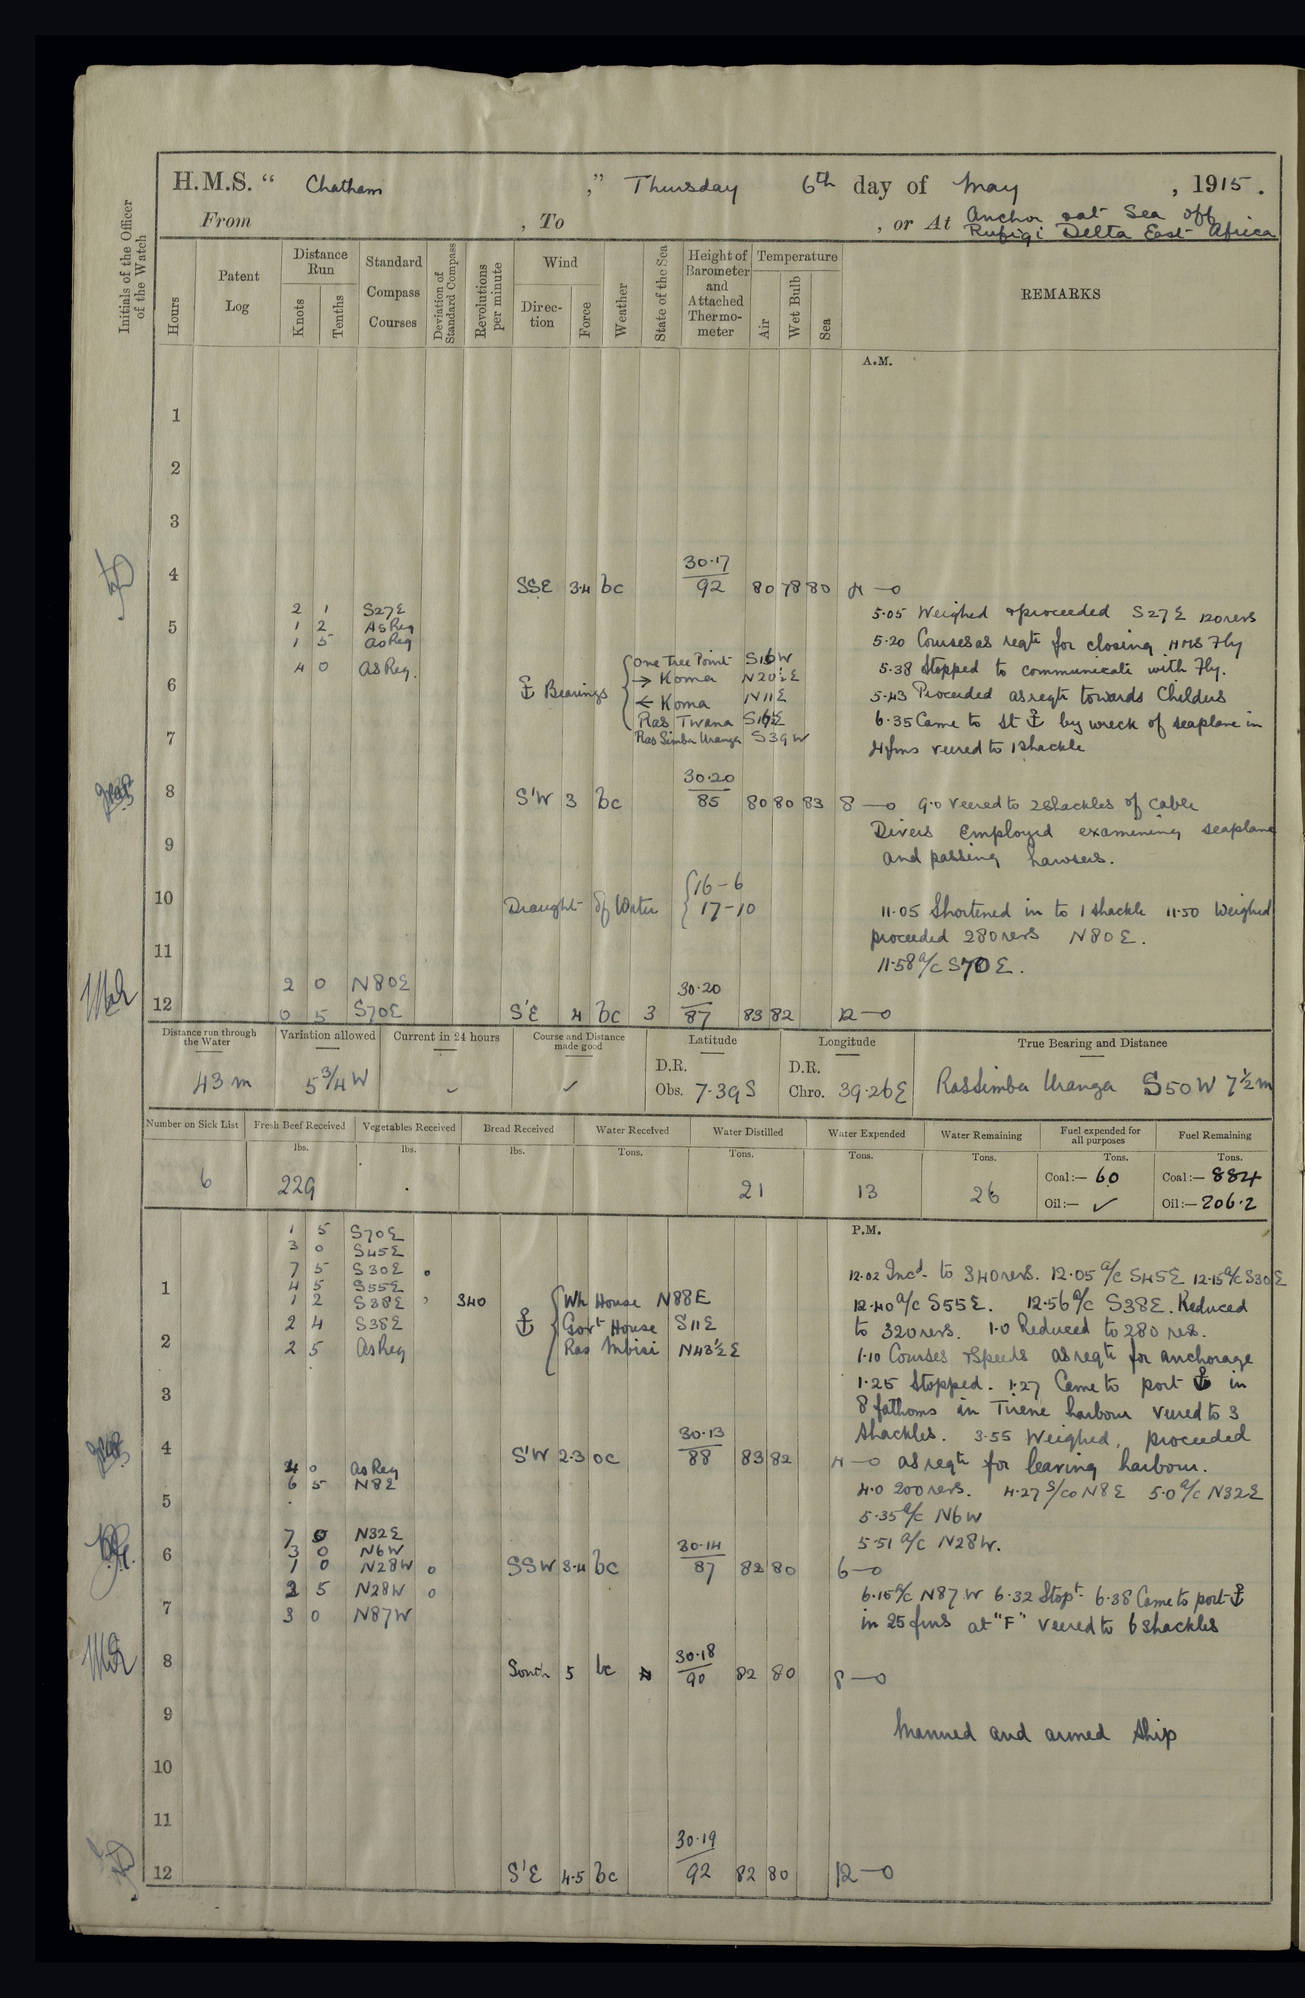 H.M.S. " Chatham ," Thursday 6th day of May , 1915.
From , To , or At Anchor & at Sea off
Rufigi Delta East Africa
Initials of the Officer of the Watch
Hours
Patent Log
Distance Run
Knots
Tenths
Standard Compass Courses
Deviation of Standard Compass
Revolutions per minute
Wind
Direction
Force
Weather
State of the Sea
Height of Barometer and Attached Thermometer
Temperature
Air
Wet Bulb
Sea
REMARKS
A.M.
1
2
3
4 SSE 3.4 bc 30.17/92 80 78 80 4 —0
2 1 S27E 5.05 Weighed & proceeded S27E 120 revs
5 1 2 As Req
1 5 as Req 5.20 Courses as reqte for closing HMS Fly
4 0 as Req. 5.38 Stopped to communicate with Fly.
6 ⚓ Bearings
One Tree Point S16W
→ Koma N20½E
← Koma N11E
Ras Twana S16½E
Ras Simba Uranga S39W
5.43 Proceeded as reqte towards Childers
6.35 Came to St ⚓ by wreck of seaplane in
7 4 fms veered to 1 shackle
8 S'W 3 bc 30.20/85 80 80 83 8 —0 9.0 veered to 2 shackles of cable
Divers employed examining seaplane
9 and passing hawsers.
10 Draught of Water 16-6
17-10
11.05 Shortened in to 1 shackle 11.50 Weighed
proceeded 280 revs N80E.
11 11.58 a/c S70E.
2 0 N80E
12 0 5 S70E S'E 4 bc 3 30.20/87 83 82 12 —0
Distance run through the Water
43 m
Variation allowed
5¾W
Current in 24 hours
✓
Course and Distance made good
✓
Latitude
D.R.
Obs. 7.39S
Longitude
D.R.
Chro. 39.26E
True Bearing and Distance
Ras Simba Uranga S50W 7½m
Number on Sick List
6
Fresh Beef Received
lbs.
229
Vegetables Received
lbs.
Bread Received
lbs.
Water Received
Tons.
Water Distilled
Tons.
21
Water Expended
Tons.
13
Water Remaining
Tons.
26
Fuel expended for all purposes
Tons.
Coal:— 60
Oil:— ✓
Fuel Remaining
Tons.
Coal:— 884
Oil:— 206.2
P.M.
1 5 S70E
3 0 S45E
7 5 S30E 12.02 Incd. to 340 revs. 12.05 a/c S45E 12.15 a/c S30E
1 4 5 S55E
1 2 S38E 340 12.40 a/c S55E. 12.56 a/c S38E. Reduced
2 4 S38E to 320 revs. 1.0 Reduced to 280 revs.
2 2 5 As Req 1.10 Courses & Speeds as reqte for anchorage
⚓ Wh House N88E
Govt House S11E
Ras Mbisi N43½E
1.25 Stopped. 1.27 Came to port ⚓ in
3 8 fathoms in Tirene harbour veered to 3
shackles. 3.55 Weighed, proceeded
4 S'W 2.3 oc 30.13/88 83 82 4 —0 as reqte for leaving harbour.
4 0 as Req
6 5 N8E 4.0 200 revs. 4.27 S/co N8E 5.0 a/c N32E
5 5.35 a/c N6W
7 0 N32E 5.51 a/c N28W.
3 0 N6W
6 1 0 N28W 0 SSW 3.4 bc 30.14/87 82 80 6 —0
2 5 N28W 0 6.15 a/c N87W 6.32 Stopt. 6.38 Came to port ⚓
7 3 0 N87W in 25 fms at "F" veered to 6 shackles
8 South 5 bc 30.18/90 82 80 8 —0
9 Manned and armed ship
10
11
12 S'E 4.5 bc 30.19/92 82 80 12 —0